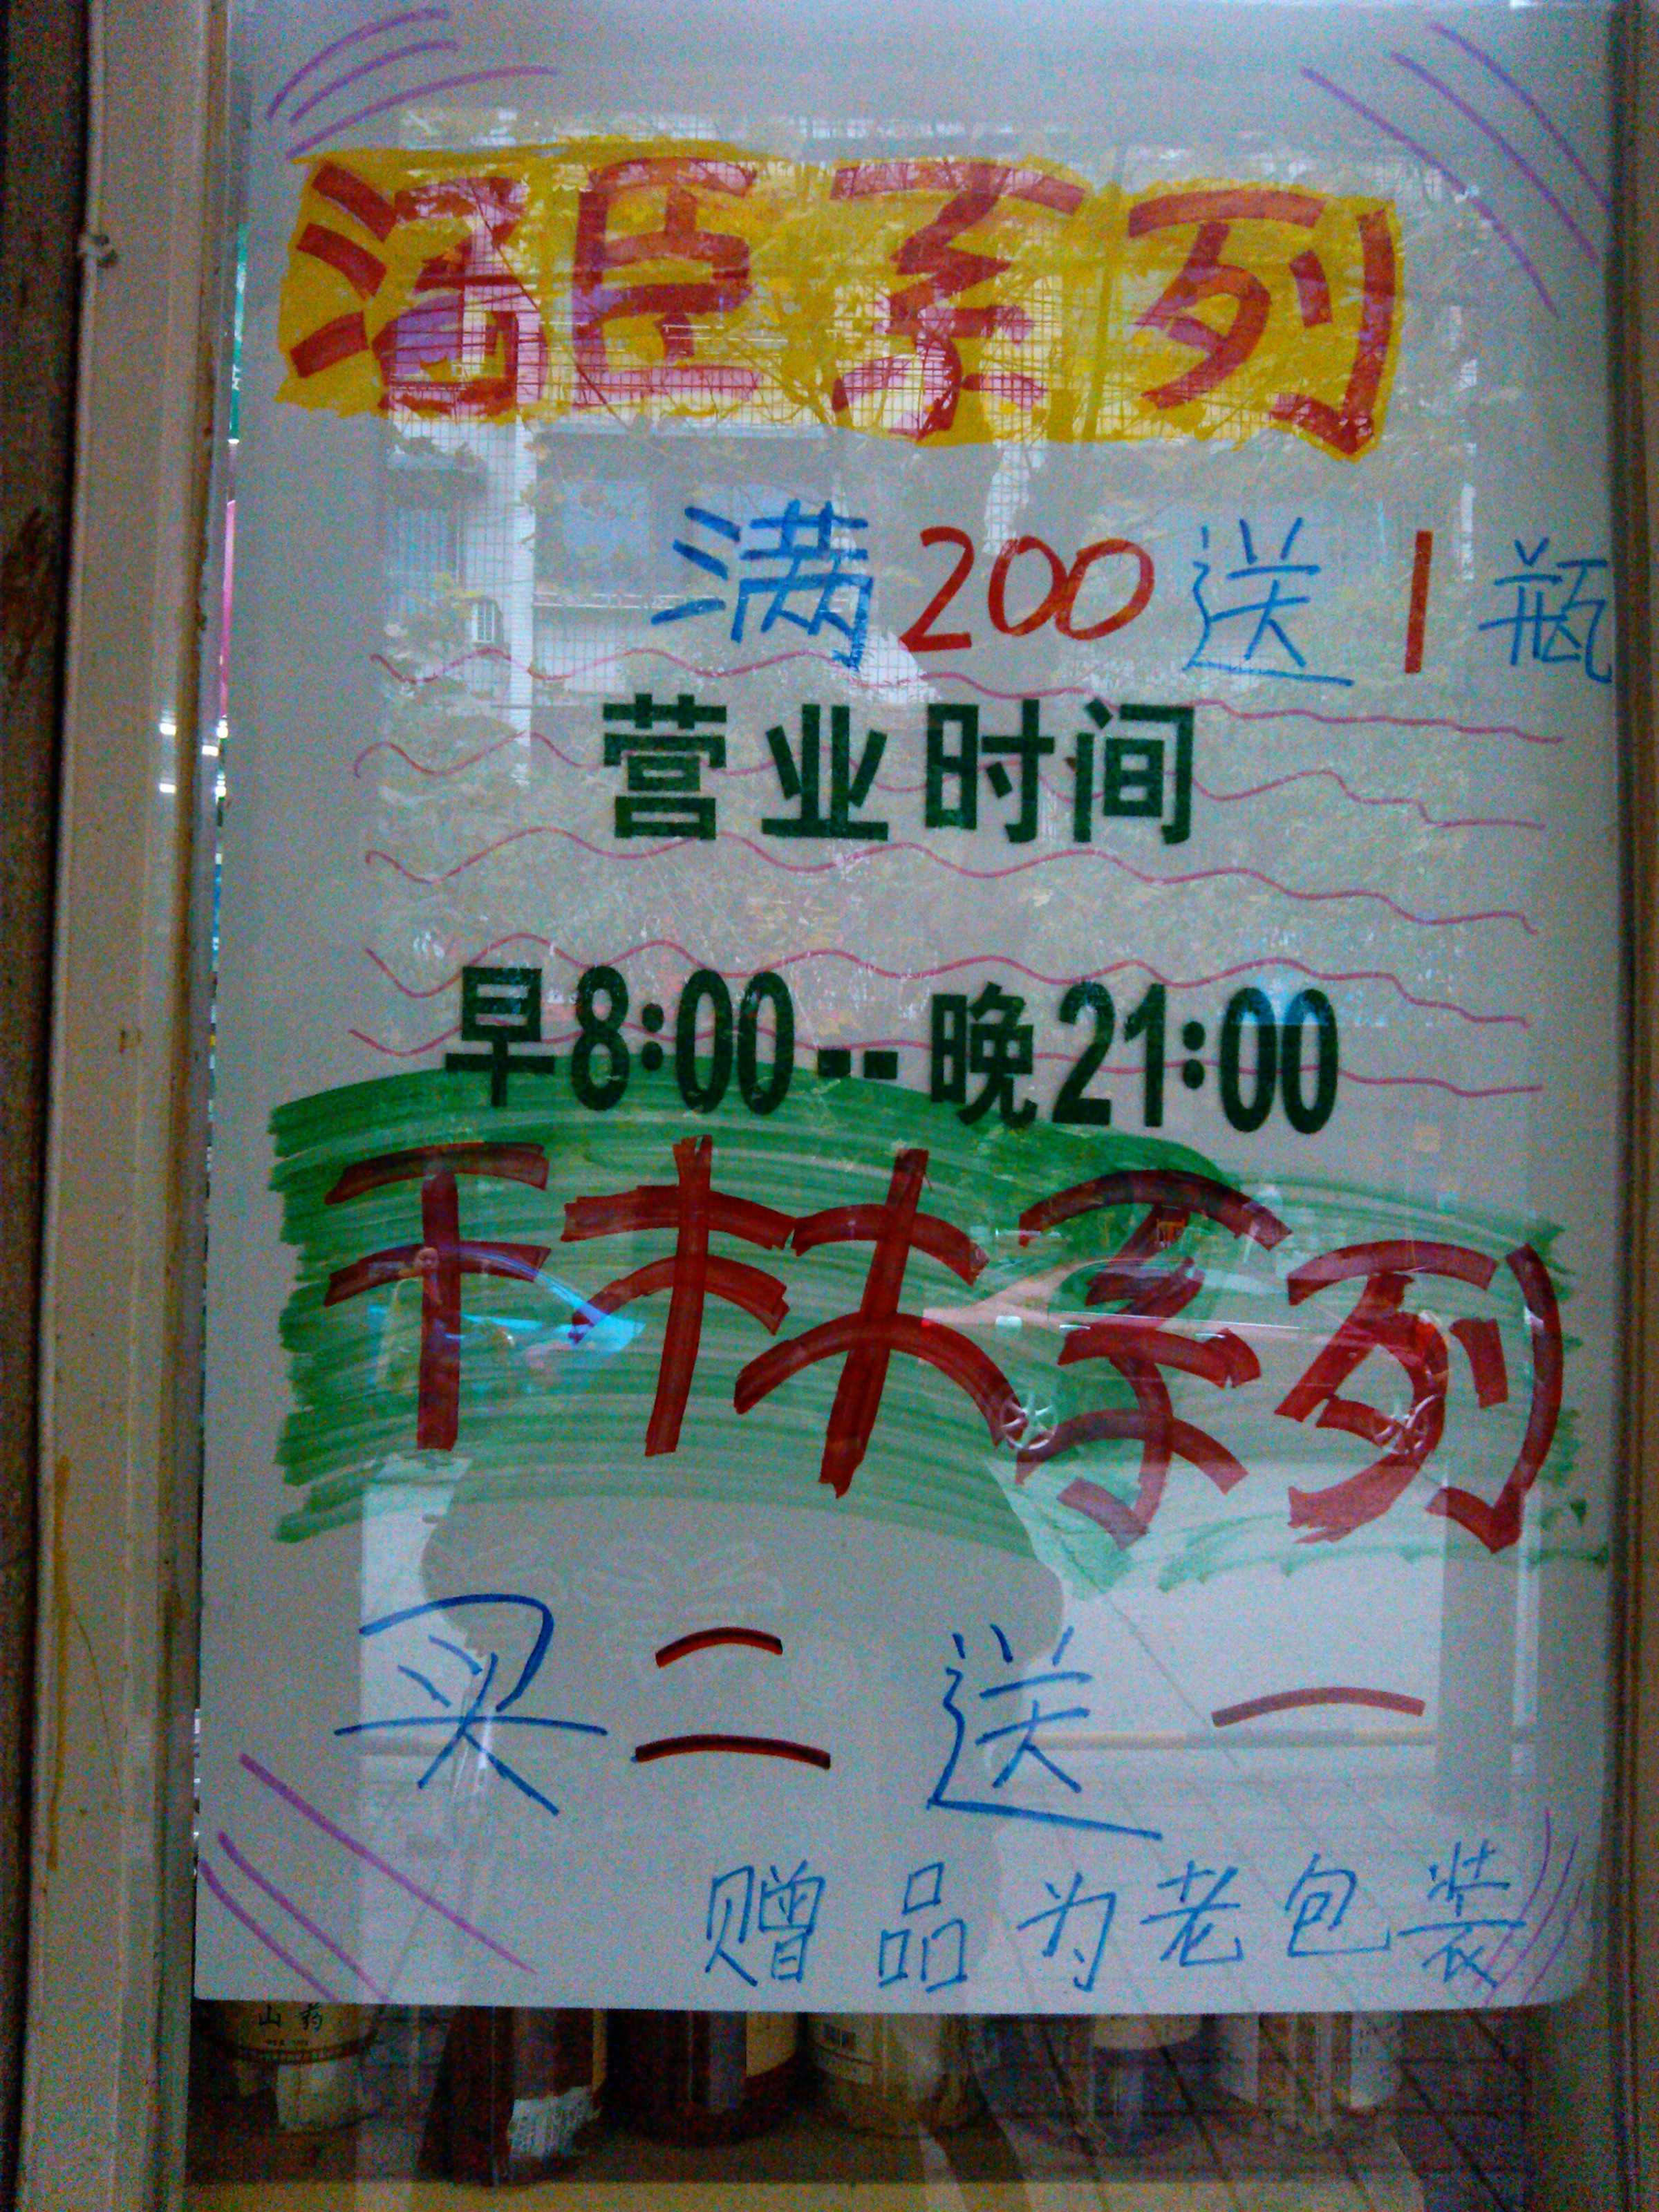 汤臣系列
满200送1瓶
营业时间
早8:00--晚21:00
千林系列
买二送一
赠品为老包装
山药